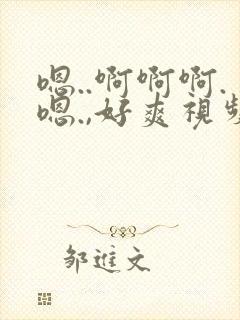 嗯..啊啊啊.
嗯.,好爽視
邹進文